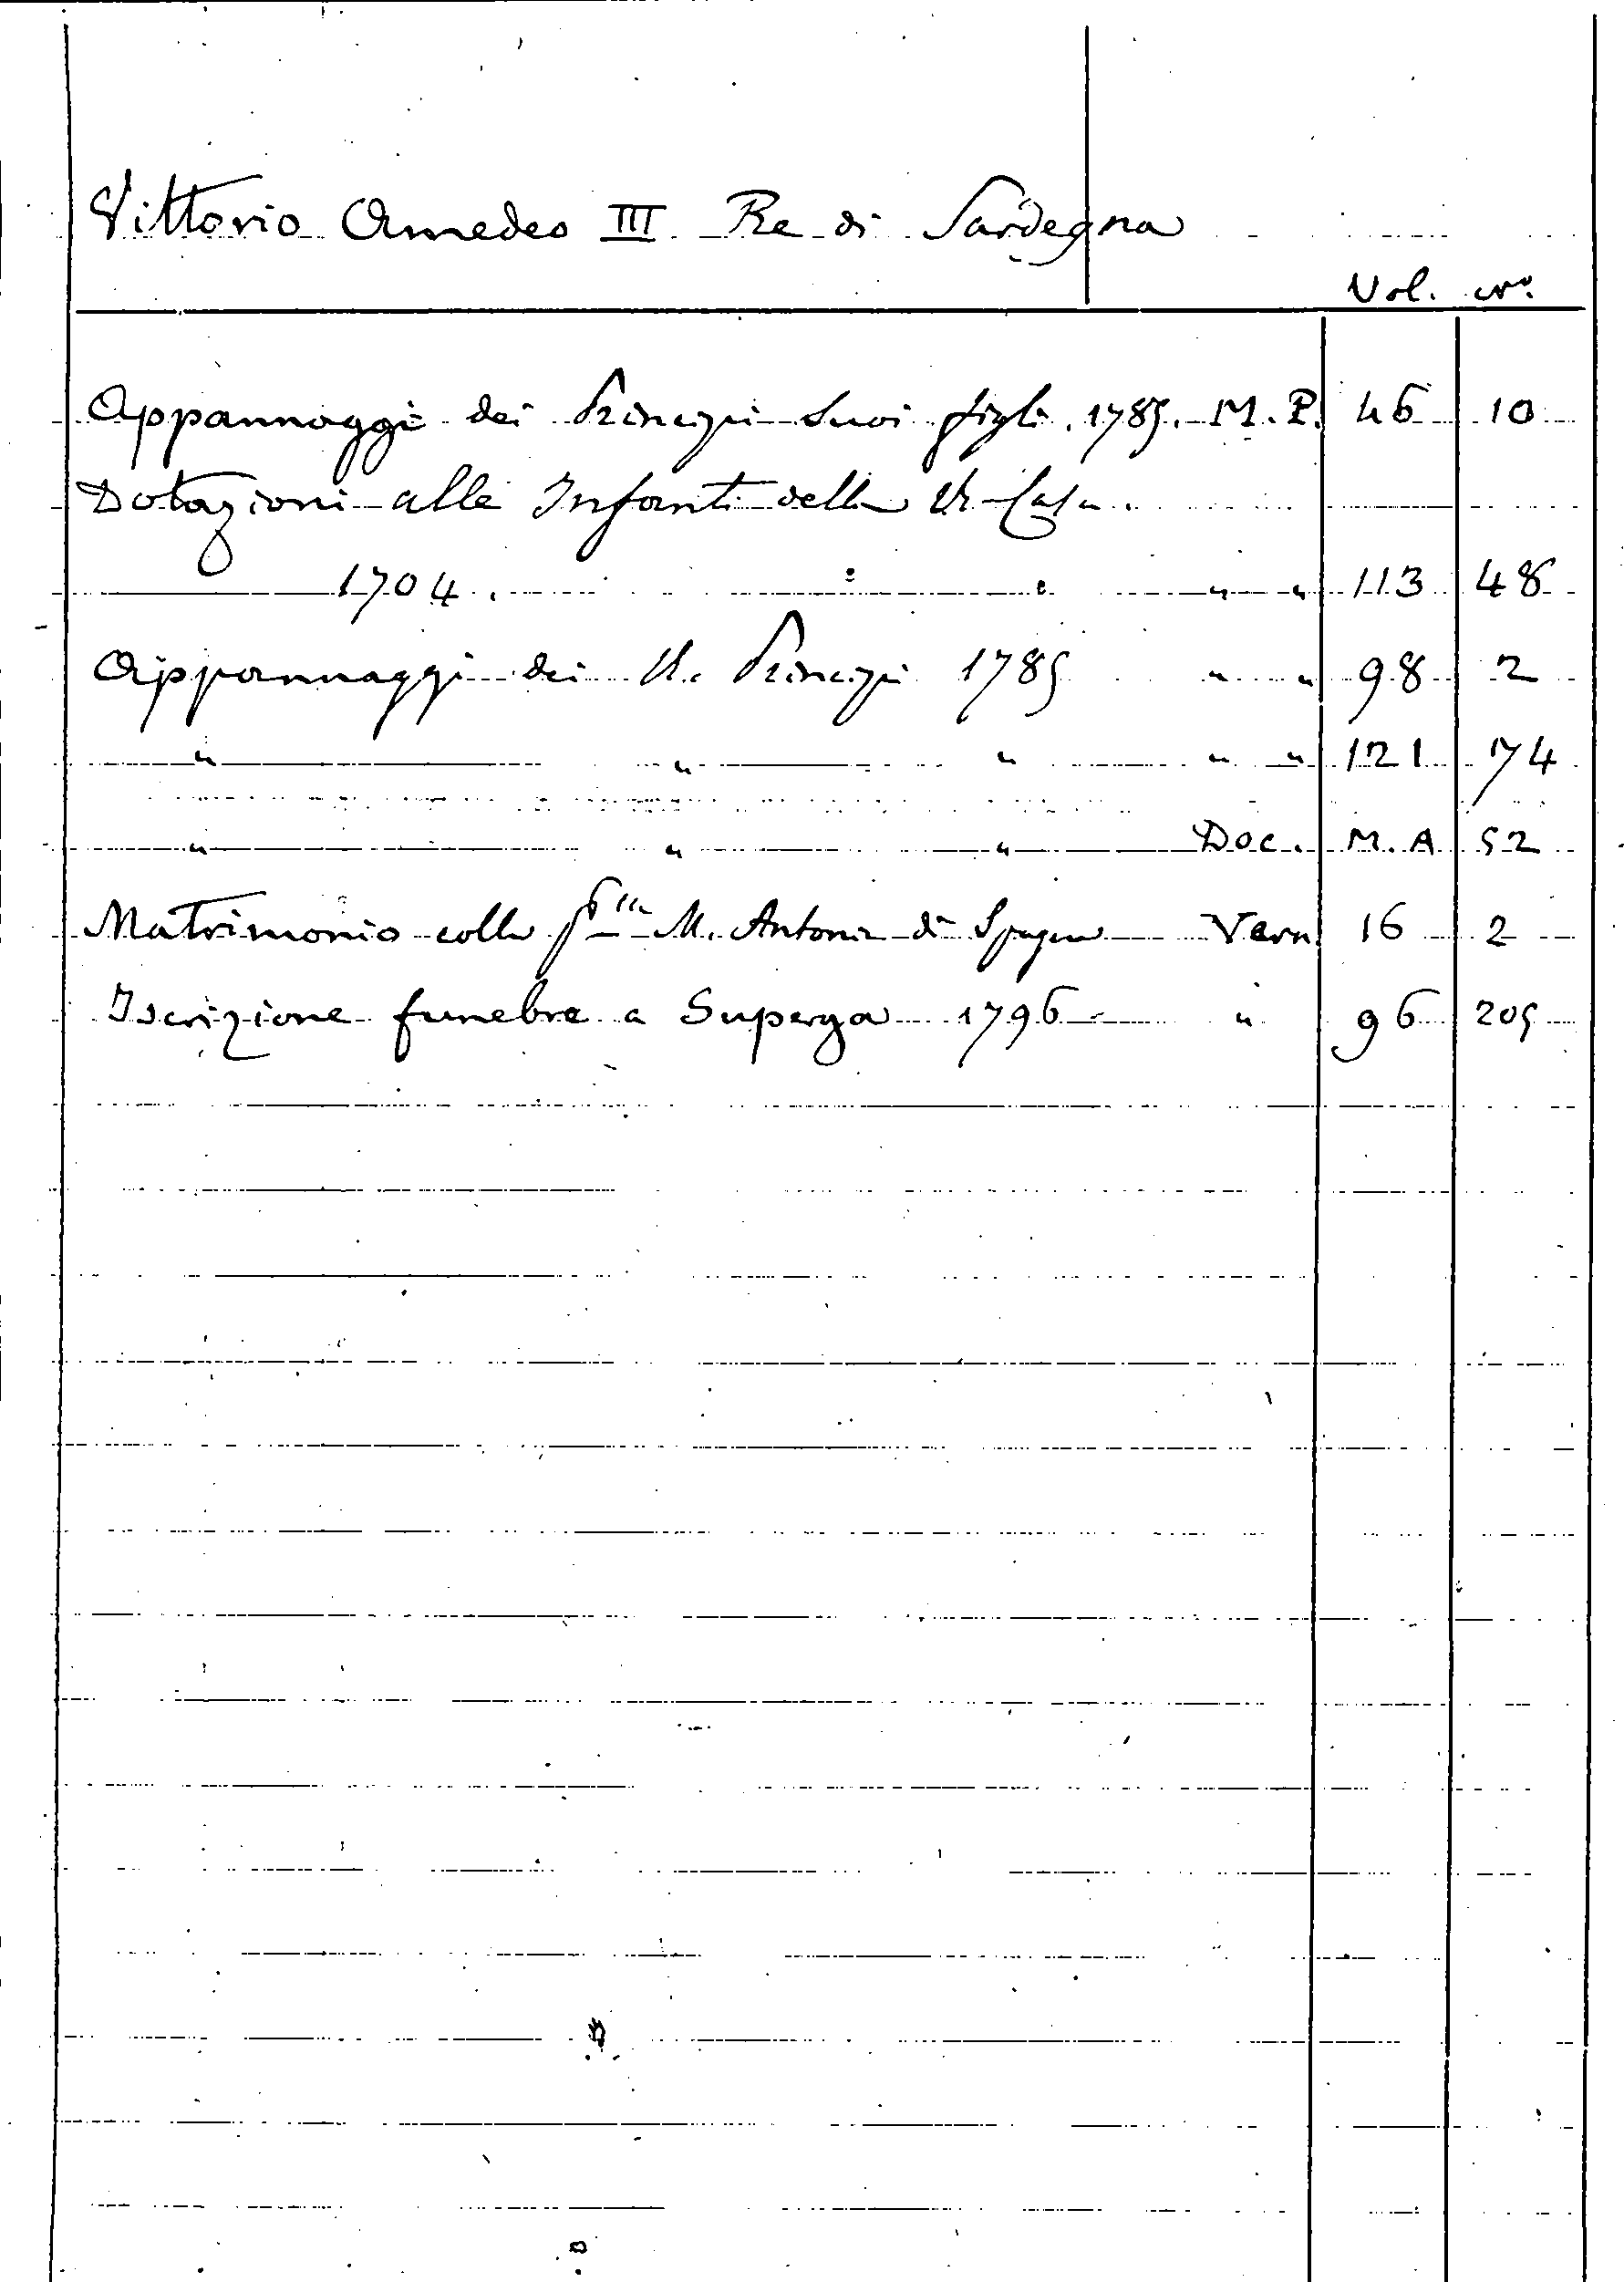 Vittorio Amedeo III Re di Sardegna
Vol. N°.
Appannaggi dei Principi suoi figli. 1785. M. P. 46 10
Dotazioni alle Infanti della R. Casa.
1704. " " 113 48
Appannaggi dei R. Principi 1785 " " 98 2
" " " " " 121 74
" " " Doc. M. A 52
Matrimonio colla Pssa M. Antonia di Spagna Varn 16 2
Iscrizione funebre a Superga 1796 " 96 205